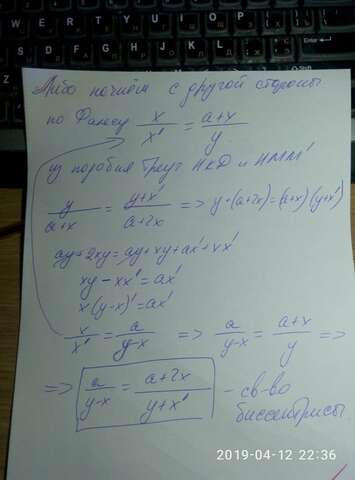 Либо начнём с другой стороны
по Фалесу x/x' = a+x/y
из подобия треуг HKD и HMM'
y/a+x = y+x'/a+2x => y·(a+2x)=(a+x)(y+x')
ay+2xy=ay+xy+ax'+xx'
xy-xx'=ax'
x(y-x)'=ax'
x/x' = a/y-x => a/y-x = a+x/y =>
=> a/y-x = a+2x/y+x' - св-во
биссектрисы
2019-04-12 22:36